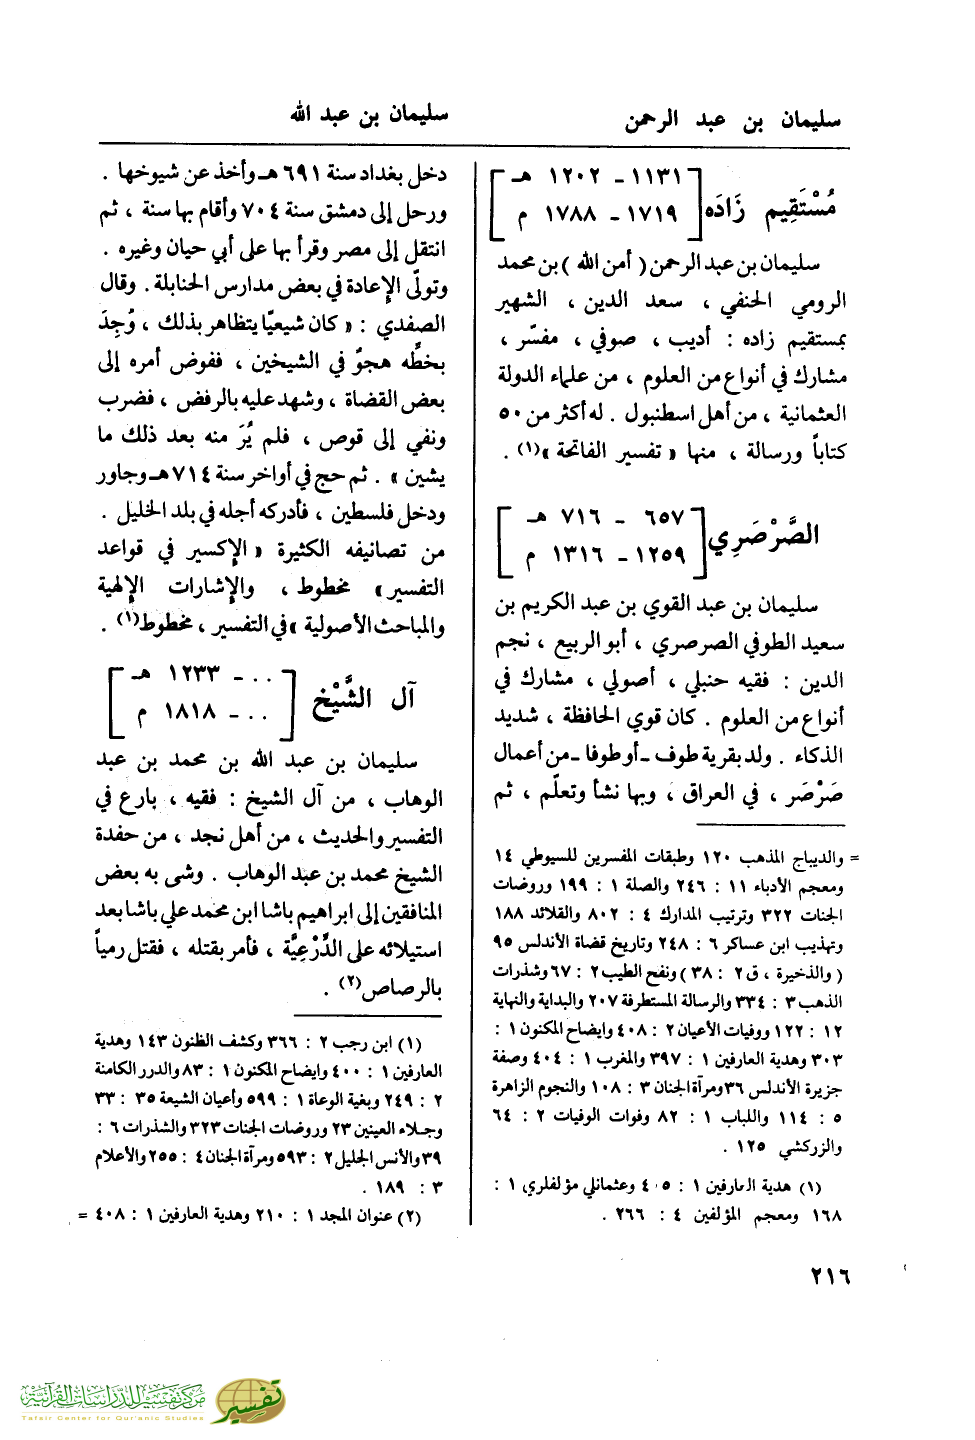 سليمان بن عبد الرحمن
سليمان بن عبد الله
مُسْتَقِيم زَادَه
١١٣١ - ١٢٠٢ هـ
١٧١٩ - ١٧٨٨ م
سليمان بن عبد الرحمن ( أمن الله ) بن محمد
الرومي الحنفي ، سعد الدين ، الشهير
بمستقيم زاده : أديب ، صوفي ، مفسّر ،
مشارك في أنواع من العلوم ، من علماء الدولة
العثمانية ، من أهل اسطنبول . له أكثر من ٥٠
كتاباً ورسالة ، منها « تفسير الفاتحة »(١) .
الصَّرْصَرِي
٦٥٧ - ٧١٦ هـ
١٢٥٩ - ١٣١٦ م
سليمان بن عبد القوي بن عبد الكريم بن
سعيد الطوفي الصرصري ، أبو الربيع ، نجم
الدين : فقيه حنبلي ، أصولي ، مشارك في
أنواع من العلوم . كان قوي الحافظة ، شديد
الذكاء . ولد بقرية طوف - أو طوفا - من أعمال
صَرْصَر ، في العراق ، وبها نشأ وتعلّم ، ثم
= والديباج المذهب ١٢٠ وطبقات المفسرين للسيوطي ١٤
ومعجم الأدباء ١١ : ٢٤٦ والصلة ١ : ١٩٩ وروضات
الجنات ٣٢٢ وترتيب المدارك ٤ : ٨٠٢ والقلائد ١٨٨
وتهذيب ابن عساكر ٦ : ٢٤٨ وتاريخ قضاة الأندلس ٩٥
( والذخيرة ، ق ٢ : ٣٨ ) ونفح الطيب ٢ : ٦٧ وشذرات
الذهب ٣ : ٣٣٤ والرسالة المستطرفة ٢٠٧ والبداية والنهاية
١٢ : ١٢٢ ووفيات الأعيان ٢ : ٤٠٨ وايضاح المكنون ١ :
٣٠٣ وهدية العارفين ١ : ٣٩٧ والمغرب ١ : ٤٠٤ وصفة
جزيرة الأندلس ٣٦ ومرآة الجنان ٣ : ١٠٨ والنجوم الزاهرة
٥ : ١١٤ واللباب ١ : ٨٢ وفوات الوفيات ٢ : ٦٤
والزركشي ١٢٥ .
(١) هدية العارفين ١ : ٤٠٥ وعثمانلي مؤلفلري ١ :
١٦٨ ومعجم المؤلفين ٤ : ٢٦٦ .
دخل بغداد سنة ٦٩١ هـ وأخذ عن شيوخها .
ورحل إلى دمشق سنة ٧٠٤ وأقام بها سنة ، ثم
انتقل إلى مصر وقرأ بها على أبي حيان وغيره .
وتولّى الإعادة في بعض مدارس الحنابلة . وقال
الصفدي : « كان شيعيًا يتظاهر بذلك ، وُجِدَ
بخطِّه هجوٌ في الشيخين ، ففوض أمره إلى
بعض القضاة ، وشهد عليه بالرفض ، فضرب
ونفي إلى قوص ، فلم يُرَ منه بعد ذلك ما
يشين » . ثم حج في أواخر سنة ٧١٤ هـ وجاور
ودخل فلسطين ، فأدركه أجله في بلد الخليل .
من تصانيفه الكثيرة « الإكسير في قواعد
التفسير » مخطوط ، والإشارات الإلهية
والمباحث الأصولية » في التفسير ، مخطوط(١) .
آل الشَّيْخ
.. - ١٢٣٣ هـ
.. - ١٨١٨ م
سليمان بن عبد الله بن محمد بن عبد
الوهاب ، من آل الشيخ : فقيه ، بارع في
التفسير والحديث ، من أهل نجد ، من حفدة
الشيخ محمد بن عبد الوهاب . وشى به بعض
المنافقين إلى ابراهيم باشا ابن محمد علي باشا بعد
استيلائه على الدِّرْعِيَّة ، فأمر بقتله ، فقتل رمياً
بالرصاص(٢) .
(١) ابن رجب ٢ : ٣٦٦ وكشف الظنون ١٤٣ وهدية
العارفين ١ : ٤٠٠ وايضاح المكنون ١ : ٨٣ والدرر الكامنة
٢ : ٢٤٩ وبغية الوعاة ١ : ٥٩٩ وأعيان الشيعة ٣٥ : ٣٣
وجلاء العينين ٢٣ وروضات الجنات ٣٢٣ والشذرات ٦ :
٣٩ والأنس الجليل ٢ : ٥٩٣ ومرآة الجنان ٤ : ٢٥٥ والأعلام
٣ : ١٨٩ .
(٢) عنوان المجد ١ : ٢١٠ وهدية العارفين ١ : ٤٠٨ =
٢١٦
مركز تفسير للدراسات القرآنية
Tafsir Center for Qur'anic Studies
تفسير